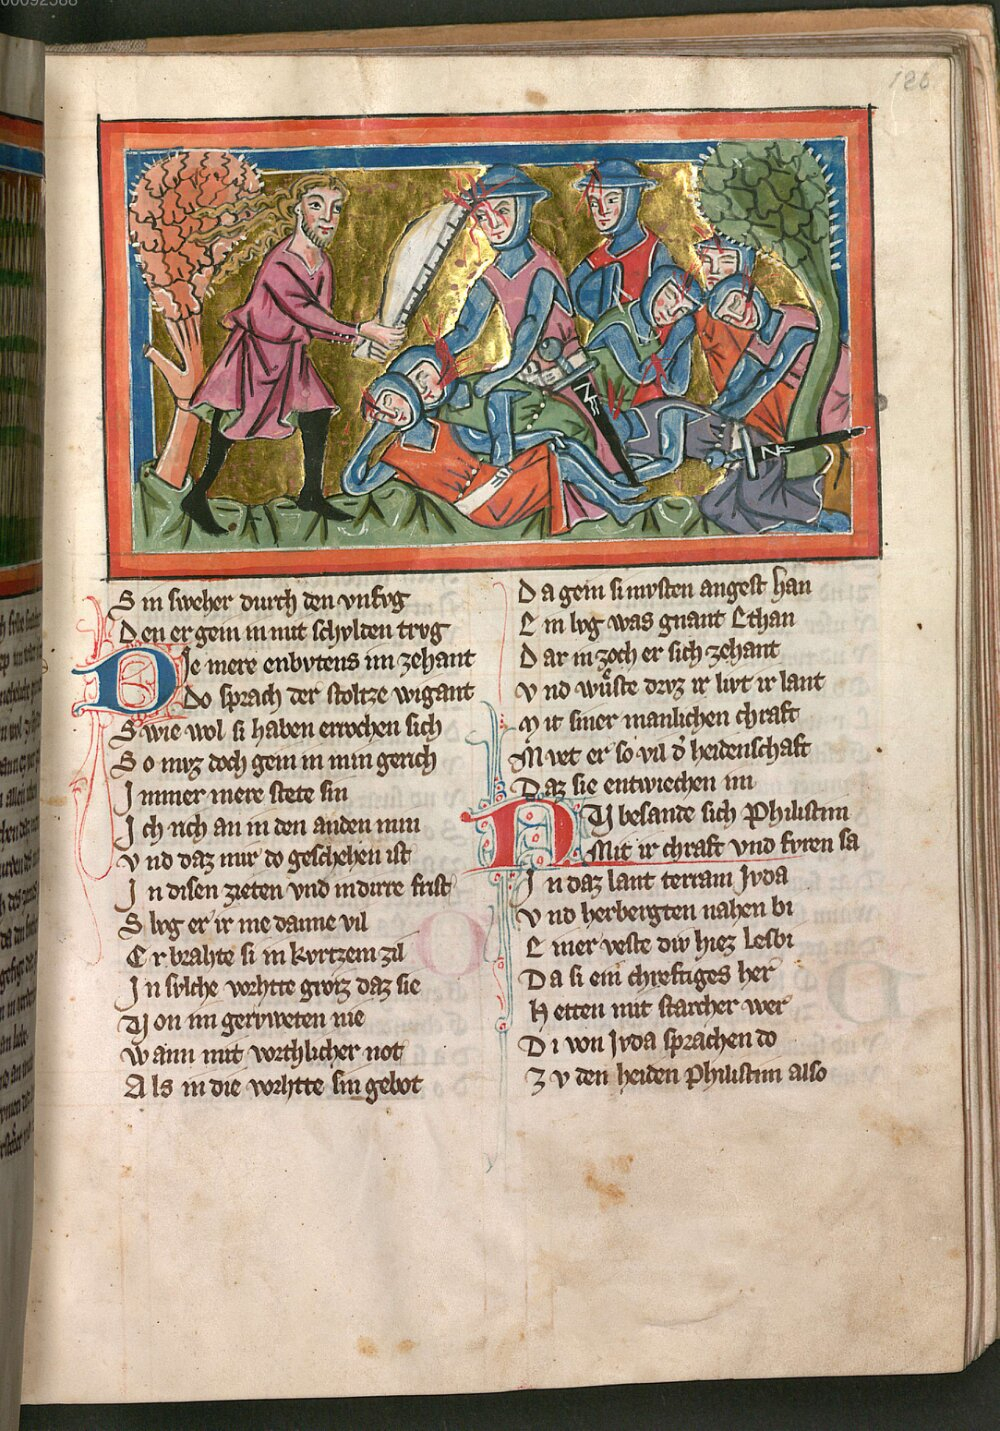 00092568
126
S in sweher durch den vnfvg
D en er gein im mit schvlden trvg
Die mere enbvtens im zehant
Do sprach der stoltze wigant
S wie wol si haben errochen sich
S o mvz doch gein in min gerich
I mmer mere stete sin
I ch rich an in den anden min
v nd daz mir do geschehen ist
I n disen zieten vnd in dirre frist
S lvg er ir me danne vil
E r brahte si in kvrtzem zil
I n sylche vorhtte groz daz sie
V on im gervweten nie
w ann mit vorchlicher not
A ls in die vorhtte sin gebot
D a gein si mvsten angest han
E in lvg was gnant Ethan
D ar in zoch er sich zehant
v nd wůste drvz ir livt ir lant
M it siner manlichen chraft
M vet er so vil d' heidenschaft
D az sie entwiechen im
NV besande sich Philistim
Mit ir chraft vnd fvren sa
I n daz lant terram Jvda
v nd herbergten nahen bi
E iner veste div hiez Lesbi
D a si ein chreftiges her
H etten mit starcher wer
D i von Jvda sprachen do
Z v den heiden Philistim also